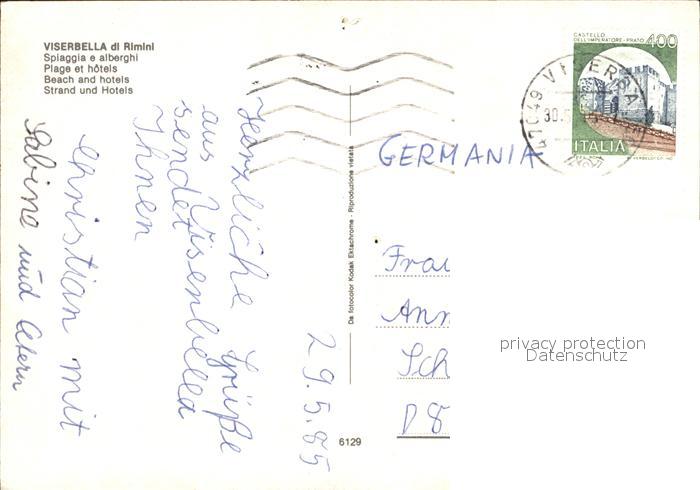 VISERBELLA di Rimini
Spiaggia e alberghi
Plage et hôtels
Beach and hotels
Strand und Hotels
CASTELLO
DELL'IMPERATORE - PRATO
400
ITALIA
47049 VISERBA
30.5
GERMANIA
29.5.85
Herzliche Grüße
aus Visenbella
sendet
Ihnen
Christian mit
Sabine und
Da fotocolor Kodak Ektachrome - Riproduzione vietata
Frau
Ann
Sch
D 8
6129
privacy protection
Datenschutz